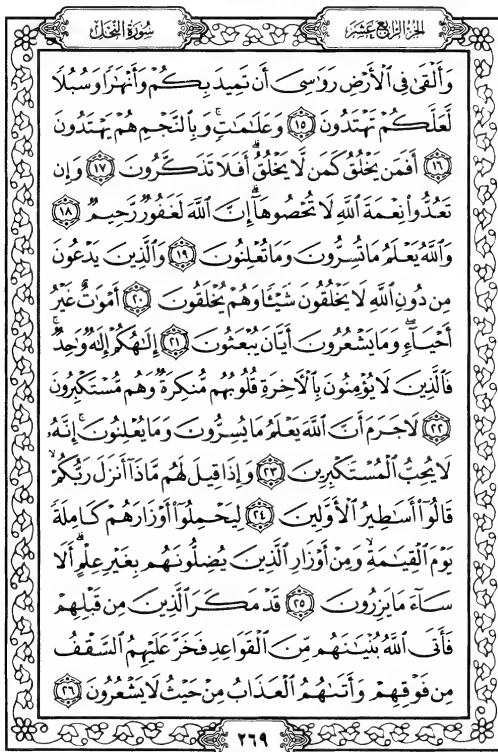 الجزء الرابع عشر
سورة النحل
وَأَلْقَىٰ فِي الْأَرْضِ رَوَاسِيَ أَن تَمِيدَ بِكُمْ وَأَنْهَارًا وَسُبُلًا
لَّعَلَّكُمْ تَهْتَدُونَ ١٥ وَعَلَامَاتٍ ۚ وَبِالنَّجْمِ هُمْ يَهْتَدُونَ
١٦ أَفَمَن يَخْلُقُ كَمَن لَّا يَخْلُقُ ۗ أَفَلَا تَذَكَّرُونَ ١٧ وَإِن
تَعُدُّوا نِعْمَةَ اللَّهِ لَا تُحْصُوهَا ۗ إِنَّ اللَّهَ لَغَفُورٌ رَّحِيمٌ ١٨
وَاللَّهُ يَعْلَمُ مَا تُسِرُّونَ وَمَا تُعْلِنُونَ ١٩ وَالَّذِينَ يَدْعُونَ
مِن دُونِ اللَّهِ لَا يَخْلُقُونَ شَيْئًا وَهُمْ يُخْلَقُونَ ٢٠ أَمْوَاتٌ غَيْرُ
أَحْيَاءٍ ۖ وَمَا يَشْعُرُونَ أَيَّانَ يُبْعَثُونَ ٢١ إِلَٰهُكُمْ إِلَٰهٌ وَاحِدٌ ۚ
فَالَّذِينَ لَا يُؤْمِنُونَ بِالْآخِرَةِ قُلُوبُهُم مُّنكِرَةٌ وَهُم مُّسْتَكْبِرُونَ
٢٢ لَا جَرَمَ أَنَّ اللَّهَ يَعْلَمُ مَا يُسِرُّونَ وَمَا يُعْلِنُونَ ۚ إِنَّهُ
لَا يُحِبُّ الْمُسْتَكْبِرِينَ ٢٣ وَإِذَا قِيلَ لَهُم مَّاذَا أَنزَلَ رَبُّكُمْ ۙ
قَالُوا أَسَاطِيرُ الْأَوَّلِينَ ٢٤ لِيَحْمِلُوا أَوْزَارَهُمْ كَامِلَةً
يَوْمَ الْقِيَامَةِ ۙ وَمِنْ أَوْزَارِ الَّذِينَ يُضِلُّونَهُم بِغَيْرِ عِلْمٍ ۗ أَلَا
سَاءَ مَا يَزِرُونَ ٢٥ قَدْ مَكَرَ الَّذِينَ مِن قَبْلِهِمْ
فَأَتَى اللَّهُ بُنْيَانَهُم مِّنَ الْقَوَاعِدِ فَخَرَّ عَلَيْهِمُ السَّقْفُ
مِن فَوْقِهِمْ وَأَتَاهُمُ الْعَذَابُ مِنْ حَيْثُ لَا يَشْعُرُونَ ٢٦
٢٦٩